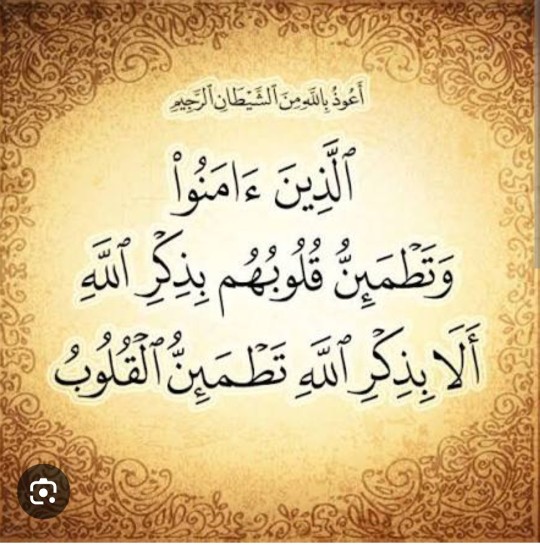 أَعُوذُ بِٱللَّهِ مِنَ ٱلشَّيْطَانِ ٱلرَّجِيمِ
ٱلَّذِينَ ءَامَنُوا۟
وَتَطْمَئِنُّ قُلُوبُهُم بِذِكْرِ ٱللَّهِ
أَلَا بِذِكْرِ ٱللَّهِ تَطْمَئِنُّ ٱلْقُلُوبُ